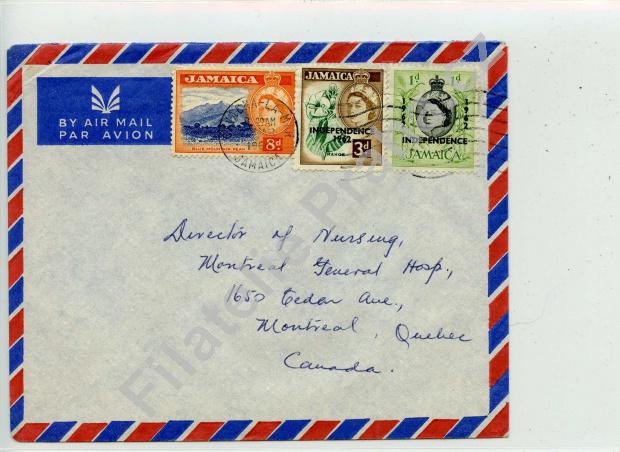 BY AIR MAIL
PAR AVION
JAMAICA
BLUE MOUNTAIN PEAK
8d
JAMAICA
JAMAICA
INDEPENDENCE
1962
MAHOE
3d
1d 1d
1962 1962
INDEPENDENCE
JAMAICA
Director of Nursing,
Montreal General Hosp.,
1650 Cedar Ave.,
Montreal, Quebec
Canada.